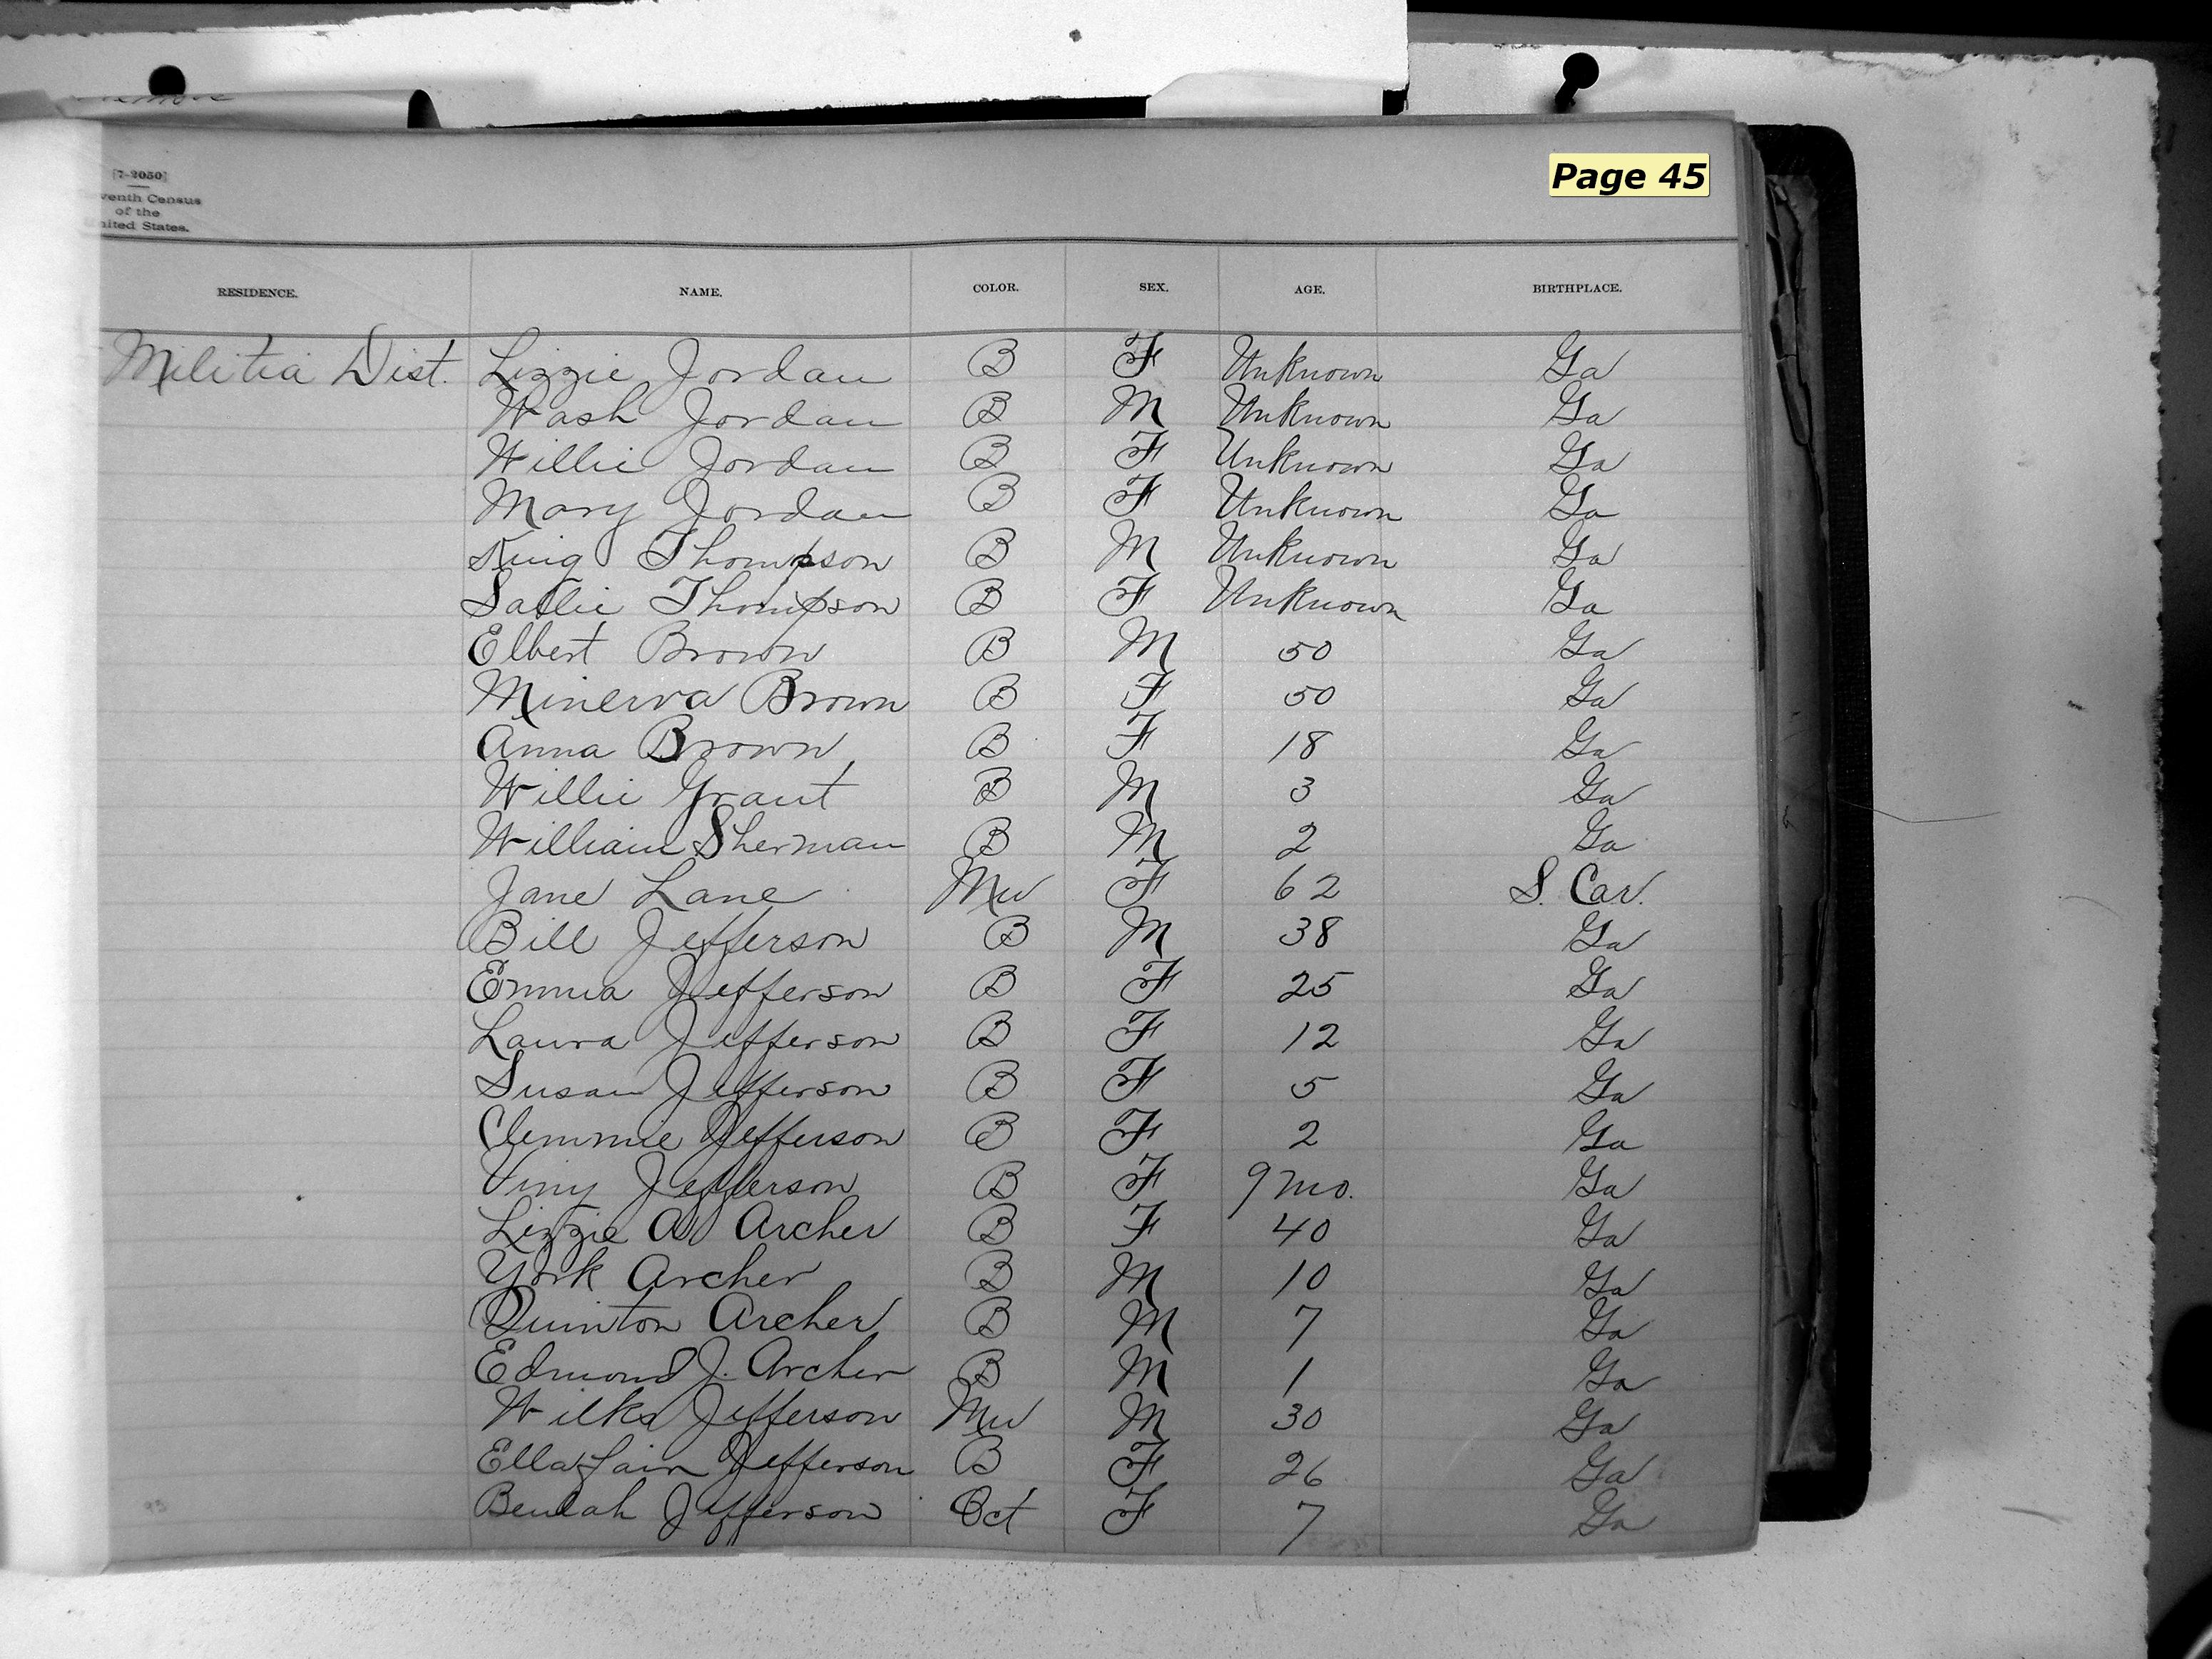 Page 45
[7-2050]
venth Census
of the
nited States.
RESIDENCE. NAME. COLOR. SEX. AGE. BIRTHPLACE.
Militia Dist. Lizzie Jordan B F Unknown Ga
Wash Jordan B M Unknown Ga
Willie Jordan B F Unknown Ga
Mary Jordan B F Unknown Ga
King Thompson B M Unknown Ga
Sallie Thompson B F Unknown Ga
Elbert Brown B M 50 Ga
Minerva Brown B F 50 Ga
Anna Brown B F 18 Ga
Willie Grant B M 3 Ga
William Sherman B M 2 Ga
Jane Lane Mu F 62 S. Car.
Bill Jefferson B M 38 Ga
Emma Jefferson B F 25 Ga
Laura Jefferson B F 12 Ga
Susan Jefferson B F 5 Ga
Clemmie Jefferson B F 2 Ga
Viny Jefferson B F 9 mo. Ga
Lizzie A Archer B F 40 Ga
York Archer B M 10 Ga
Quinton Archer B M 7 Ga
Edmond J. Archer B M 1 Ga
Wilks Jefferson Mu M 30 Ga
Ella Jefferson B F 26 Ga
Beulah Jefferson Oct F 7 Ga